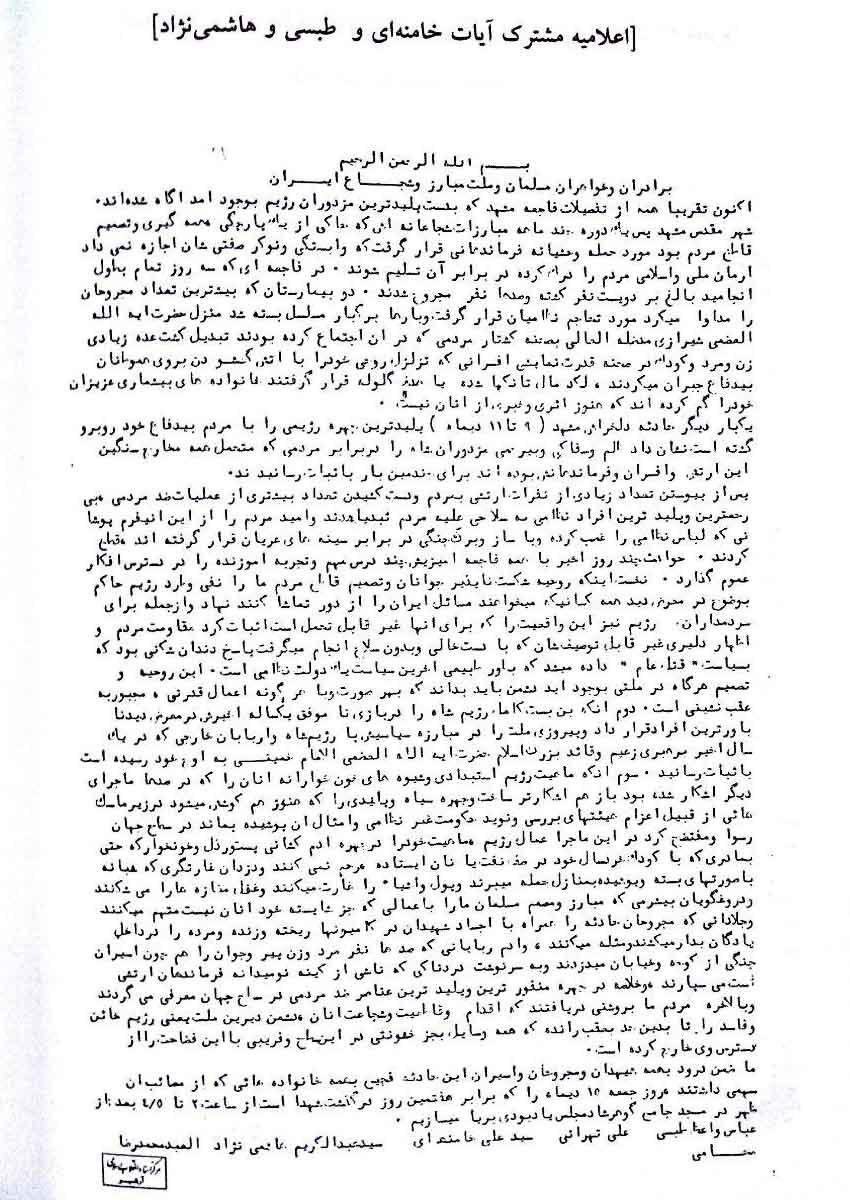 [اعلامیه مشترک آیات خامنه‌ای و طبسی و هاشمی‌نژاد]
بسم الله الرحمن الرحیم
برادران وخواهران مسلمان وملت مبارز وشجاع ایران
اکنون تقریبا همه از تفصیلات فاجعه مشهد که بدست پلیدترین مزدوران رژیم بوجود آمد آگاه شده‌اند.
شهر مقدس مشهد پس یک دوره چند ماهه مبارزات شجاعانه اش که حاکی از یک پارچگی همه گیری وتصمیم
قاطع مردم بود مورد حمله وحشیانه فرماندهانی قرار گرفت که وابستگی ونوکر صفتی شان اجازه نمی داد
آرمان ملی واسلامی مردم را درک کرده در برابر آن تسلیم شوند . در فاجعه ای که سه روز تمام بطول
انجامید بالغ بر دویست نفر کشته وصدها نفر مجروح شدند . دو بیمارستان که بیشترین تعداد مجروحان
را مداوا میکرد مورد تهاجم نظامیان قرار گرفت وبارها برگبار مسلسل بسته شد منزل حضرت ایه الله
العضمی شیرازی مدظله العالی بصحنه کشتار مردمی که در ان اجتماع کرده بودند تبدیل گشت عده زیادی
زن ومرد وکودک در صحنه قدرت نمایشی افرانی که تزلزل روحی خودرا با اتش گشودن بروی هموطنان
بیدفاع جبران میکردند ، لگد مال تانکها شده یا هدف گلوله قرار گرفتند خانواده های بیشماری عزیزان
خودرا گم کرده اند که هنوز اثری وخبری از انان نیست .
یکبار دیگر حادثه دلخراش مشهد ( ۹ تا ۱۱ دیماه ) پلیدترین چهره رژیمی را با مردم بیدفاع خود روبرو
گشته است نشان داد ظلم وسفاکی وبیرحمی مزدوران شاه را دربرابر مردمی که متحمل همه مخارج سنگین
این ارتش وافسران وفرماندهانش بوده اند برای چندمین بار باثبات رسانید ند.
پس از پیوستن تعداد زیادی از نفرات ارتشی بمردم ودست کشیدن تعداد بیشتری از عملیات ضد مردمی بی
رحمترین وپلید ترین افراد نظامی به سلاحی علیه مردم تبدیل شدند وامید مردم را از این انیفرم پوشا
نی که لباس نظامی را غصب کرده وبا ساز وبرگ جنگی در برابر سینه های عریان قرار گرفته اند قطع
کردند . حوادث چند روز اخیر با همه فاجعه امیزیش چند درس مهم وتجربه آموزنده را در دسترس افکار
عموم گذارد . نخست اینکه روحیه شکست ناپذیر جوانان وتصمیم قاطع مردم ما را نفی وطرد رژیم حاکم
بوضوح در معرض دید همه کسانیکه میخواهند مسائل ایران را از دور تماشا کنند نهاد وازجمله برای
سردمداران رژیم نیز این واقعیت را که برای انها غیر قابل تحمل است اثبات کرد مقاومت مردم و
اظهار دلیری غیر قابل توصیف شان که با دست خالی وبدون سلاح انجام میگرفت پاسخ دندان شکنی بود که
بسیاست " قتل عام " داده میشد که بطور طبیعی اخرین سیاست یک دولت نظامی است . این روحیه و
تصمیم هرگاه در ملتی بوجود اید دشمن باید بداند که بهر صورت وبا هر گونه اعمال قدرتی ، مجبور به
عقب نشینی است . دوم انکه بن بست کامل رژیم شاه را دربازی نا موفق یکساله اخیرش در معرض دید نا
باورترین افراد قرار داد وپیروزی ملت را در مبارزه سیاسیش با رژیم شاه واربابان خارجی که در یک
سال اخیر برهبری زعیم وقائد بزرگ اسلام حضرت ایه الله العضمی الامام خمینی به اوج خود رسیده است
باثبات رسانید . سوم انکه ماهیت رژیم استبدادی وشیوه های خون خوارانه انان را که در صدها ماجرای
دیگر اشکار شده بود باز هم اشکارتر ساخت وچهره سیاه وپلیدی را که هنوز هم کوشش میشود درزیر ماسک
هائی از قبیل اعزام هیئتهای بررسی ونوید حکومت غیر نظامی وامثال ان پوشیده بماند در سطح جهان
رسوا ومفتضح کرد در این ماجرا عمال رژیم ماهیت خودرا درچهره ادم کشانی پست ورذل وخونخوار که حتی
بمادری که با کودک خردسال خود در صف نفت یا نان ایستاده رحم نمی کنند ودزدان غارتگری که شبانه
باصورتهای بسته وپوشیده بمنازل حمله میبرند وپول واثیا" را غارت میکنند وقفل مغازه هارا می شکنند
ودروغگویان بیشرمی که مبارز ومصمم مسلمان مارا باعمالی که جز شایسته خود انان نیست متهم میکنند
وجلادانی که مجروحان حادثه را همراه با اجساد شهیدان در کامیونها ریخته وزنده ومرده را درداخل
پادگان بدار میکشند ومثله میکنند ، وادم ربایانی که صد ها نفر مرد وزن پیر وجوان را هم چون اسیران
جنگی از کوچه وخیابان میدزدند وبه سرنوشت دردناکی که ناشی از کینه نومیدانه فرماندهان ارتشی
است می سپارند وخلاصه در چهره منفور ترین وپلید ترین عناصر ضد مردمی در سطح جهان معرفی می گردند
وبالاخره مردم ما بروشنی دریافتند که اقدام وقاطعیت وشجاعت انان دشمن دیرین ملت یعنی رژیم خائن
وفاسد را تا بدین حد بعقب رانده که همه وسایل بجز خشونتی در این سطح وفریبی با این فضاحت را از
دسترس وی خارج کرده است .
ما ضمن درود بهمه شهیدان ومجروحان واسیران این حادثه فجیع بهمه خانواده هائی که از مصائب ان
سهمی داشتند روز جمعه ۱۵ دیماه را که برابر هفتمین روز درگذشت شهدا است از ساعت ۲ تا ۴/۵ بعد از
ظهر در مسجد جامع گوهرشاد مجلس یادبودی برپا میسازیم .
عباس واعظ طبسی علی تهرانی سید علی خامنه ای سید عبدالکریم هاشمی نژاد السید محمدرضا
محامی